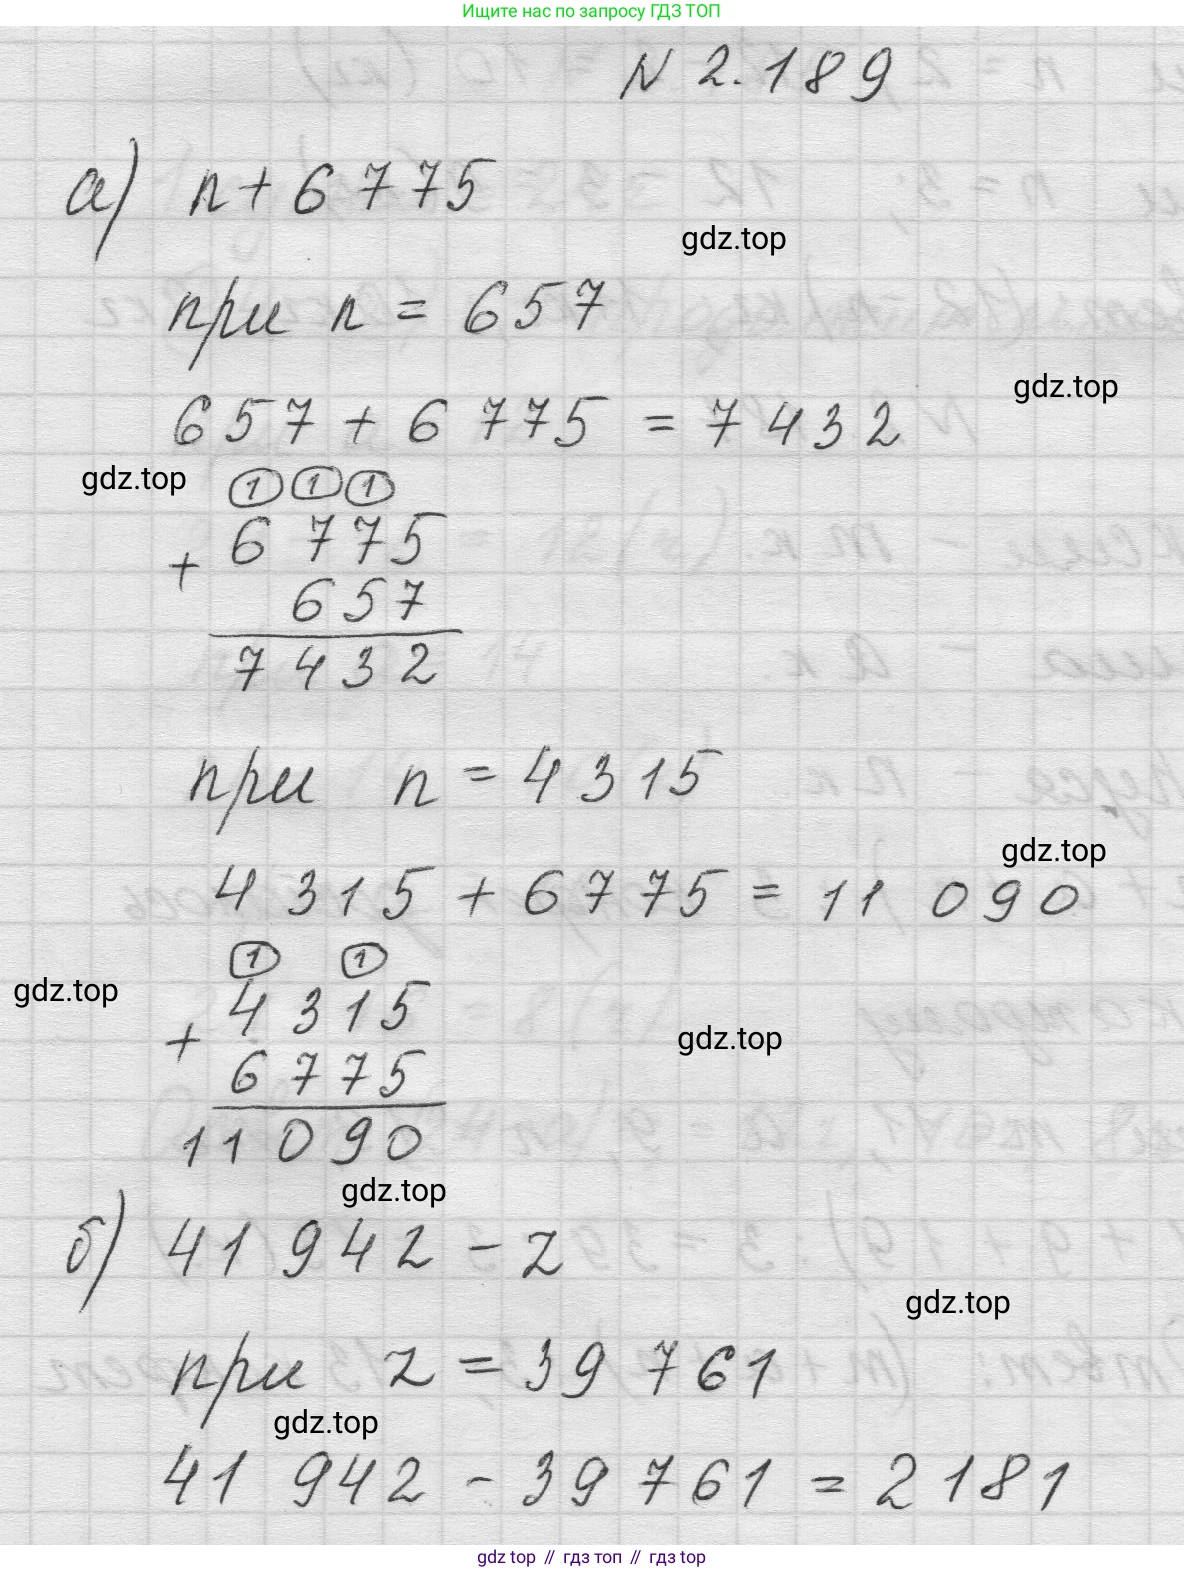 Ищите нас по запросу ГДЗ ТОП
N 2.189
а) n + 6775
gdz.top
при n = 657
gdz.top
657 + 6775 = 7432
gdz.top
1 1 1
+ 6775
657
7432
при n = 4315
gdz.top
4315 + 6775 = 11 090
1 1
gdz.top
+ 4315
gdz.top
6775
11090
gdz.top
б) 41 942 - z
gdz.top
при z = 39 761
gdz.top
41 942 - 39 761 = 2181
gdz top // гдз топ // gdz top